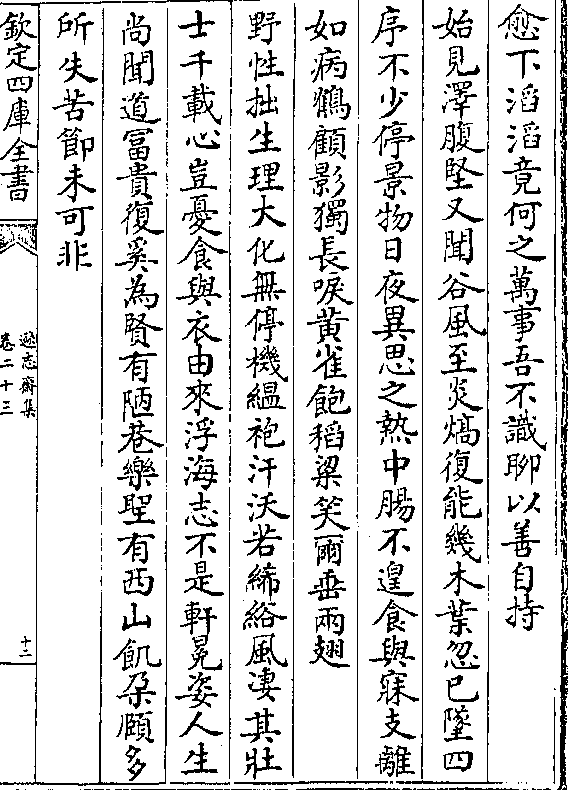 愈下滔滔竟何之萬事吾不識聊以善自持
始見澤腹堅又聞谷風至炎熇復能幾木葉忽已墜四
序不少停景物日夜異思之熱中腸不遑食與寐支離
如病鶴顧影獨長唳黄雀飽稻粱笑爾垂兩翅
野性拙生理大化無停機緼袍汗沃若絺綌風凄其壯
士千載心豈憂食與衣由來浮海志不是軒冕姿人生
尚聞道冨貴復奚為賢有陋巷樂聖有西山飢朶頤多
所失苦節未可非
欽定四庫全書
遜志齋集
卷二十三
十二